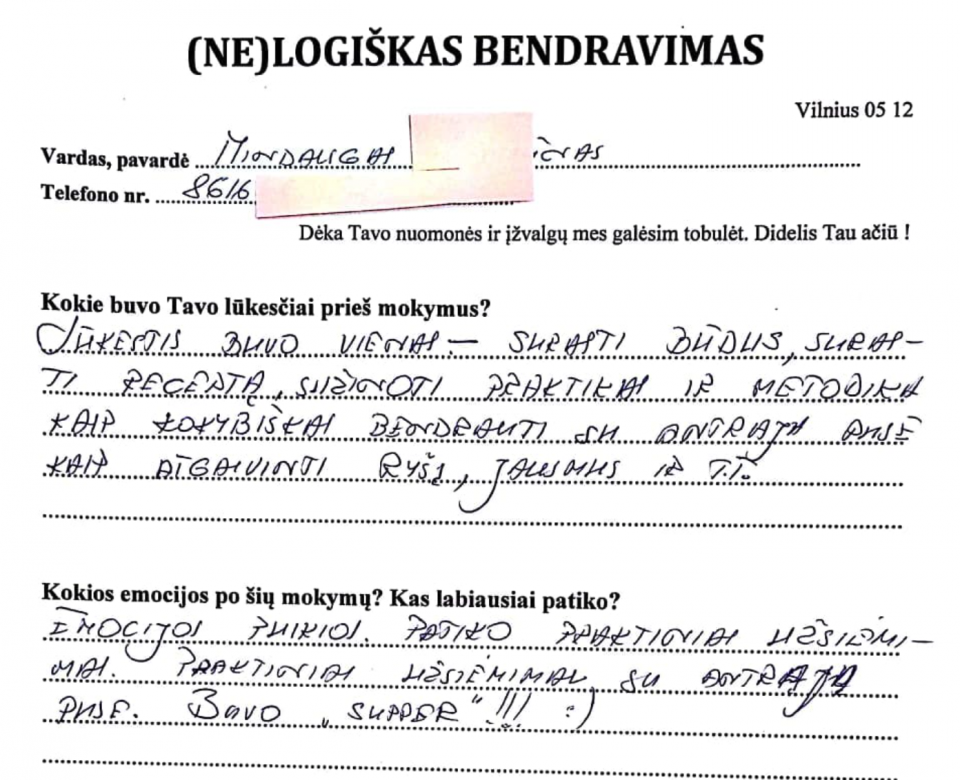 (NE)LOGIŠKAS BENDRAVIMAS
Vilnius 05 12
Vardas, pavardė MINDAUGAS
Telefono nr. 8616
Dėka Tavo nuomonės ir įžvalgų mes galėsim tobulėt. Didelis Tau ačiū !
Kokie buvo Tavo lūkesčiai prieš mokymus?
LŪKESTIS BUVO VIENAS – SURASTI BŪDUS, SURAS–
TI RECEPTĄ, SUŽINOTI PRAKTIKAS IR METODIKA
KAIP KOKYBIŠKAI BENDRAUTI SU ANTRĄJA PUSE
KAIP ATGAIVINTI RYŠĮ, JAUSMUS IR T.T.
Kokios emocijos po šių mokymų? Kas labiausiai patiko?
EMOCIJOS PUIKIOS. PATIKO PRAKTINIAI UŽSIĖMI–
MAI. PRAKTINIAI UŽSIĖMIMAI SU ANTRĄJA
PUSE. BUVO „SUPPER" !!! :)